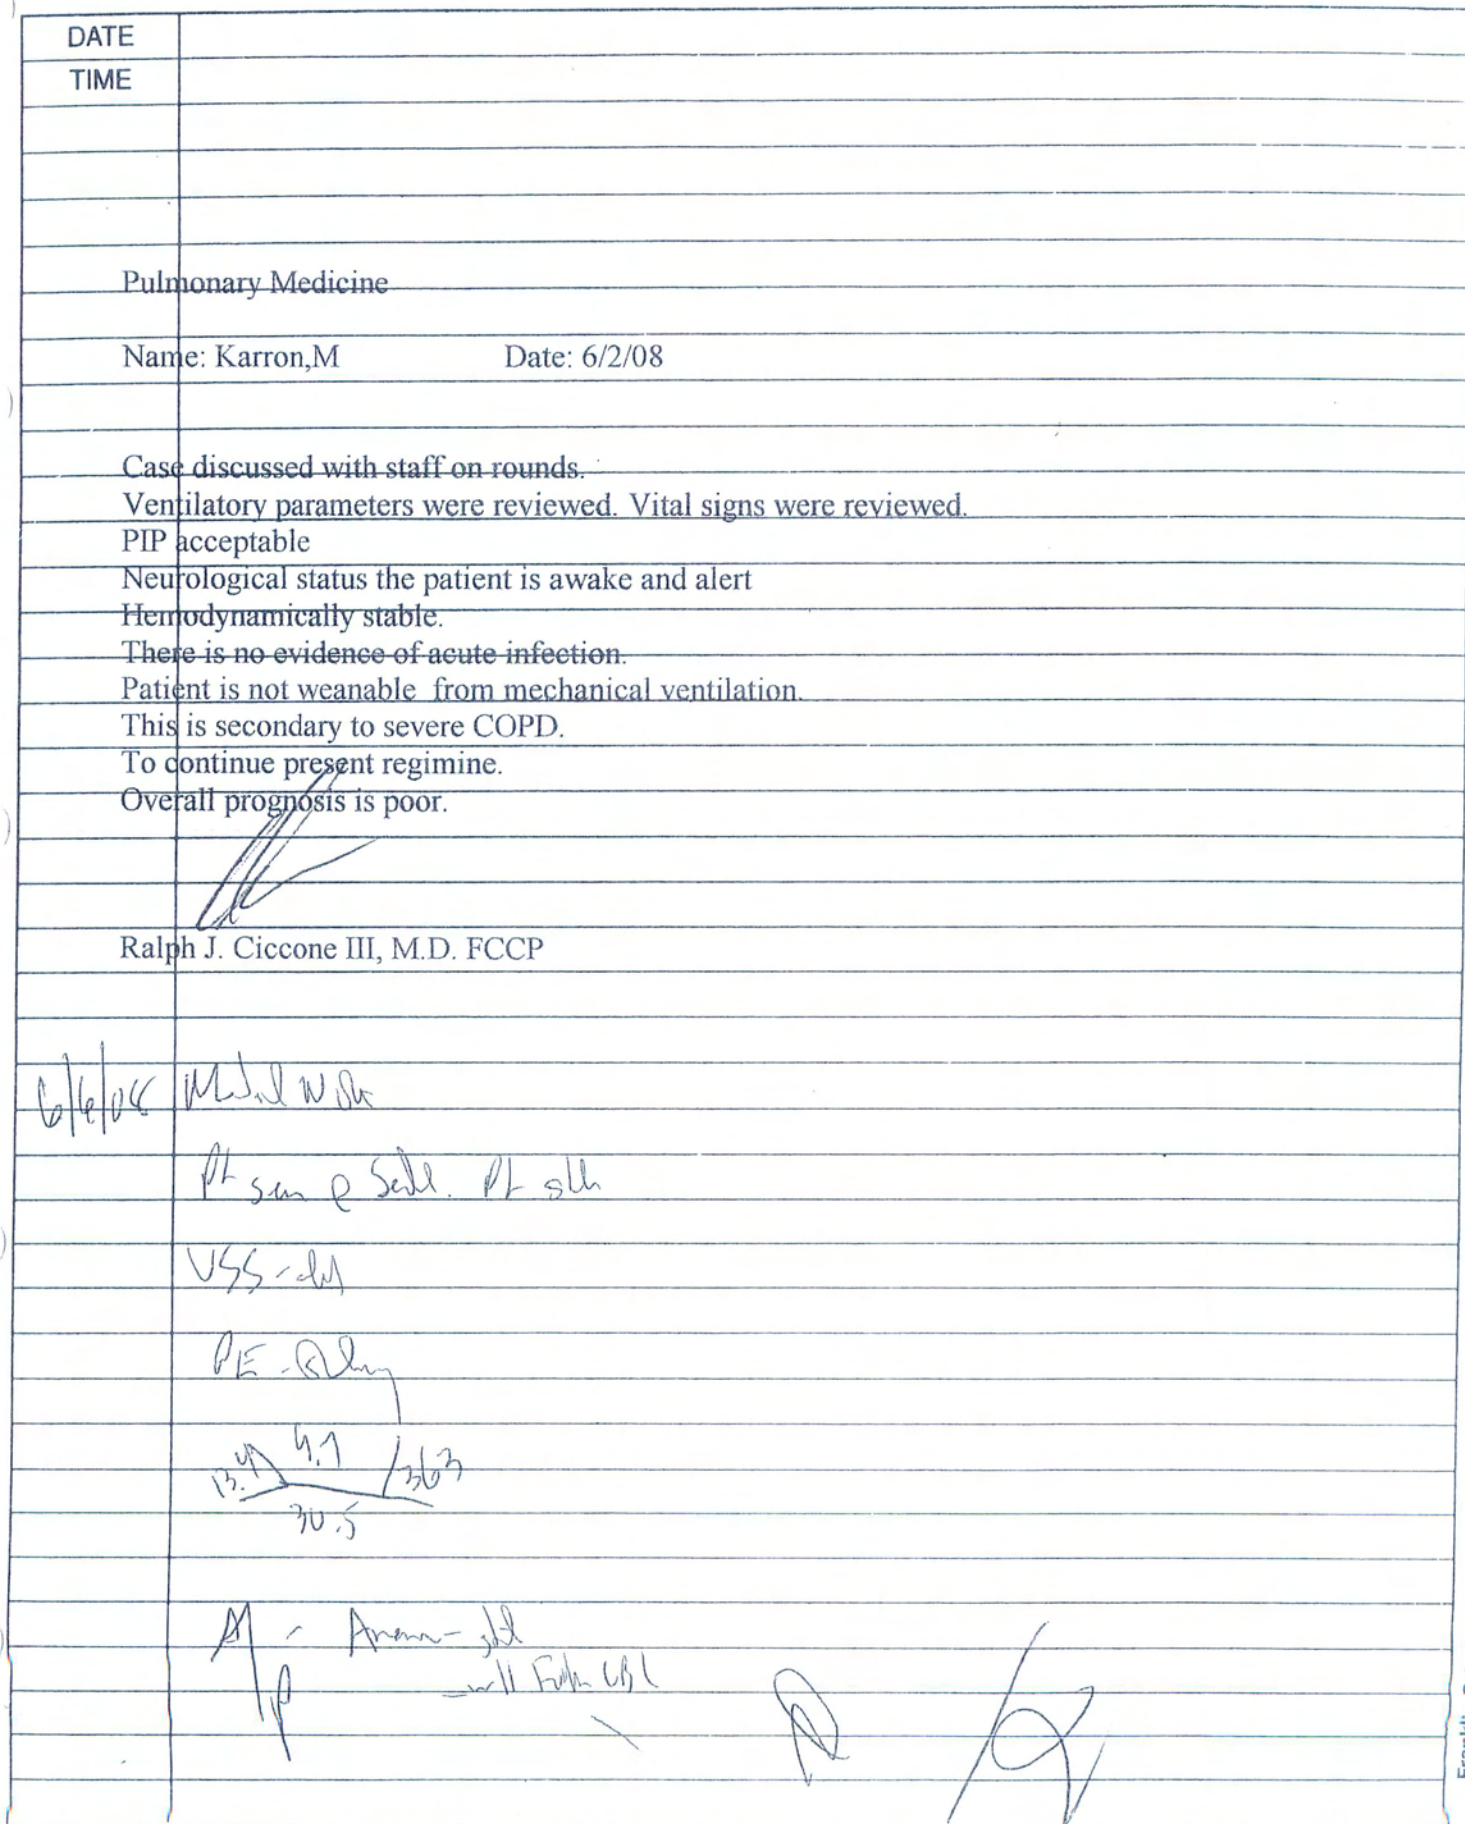 DATE
TIME
Pulmonary Medicine
Name: Karron,M Date: 6/2/08
Case discussed with staff on rounds.
Ventilatory parameters were reviewed. Vital signs were reviewed.
PIP acceptable
Neurological status the patient is awake and alert
Hemodynamically stable.
There is no evidence of acute infection.
Patient is not weanable from mechanical ventilation.
This is secondary to severe COPD.
To continue present regimine.
Overall prognosis is poor.
Ralph J. Ciccone III, M.D. FCCP
6/6/08
Pt seen Pt
VSS
PE -
13.4 363
30.5
A/P - Anemia -
- will